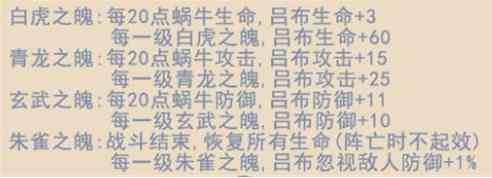 白虎之魄:每20点蜗牛生命,吕布生命+3
每一级白虎之魄,吕布生命+60
青龙之魄:每20点蜗牛攻击,吕布攻击+15
每一级青龙之魄,吕布攻击+25
玄武之魄:每20点蜗牛防御,吕布防御+11
每一级玄武之魄,吕布防御+10
朱雀之魄:战斗结束,恢复所有生命(阵亡时不起效)
每一级朱雀之魄,吕布忽视敌人防御+1%